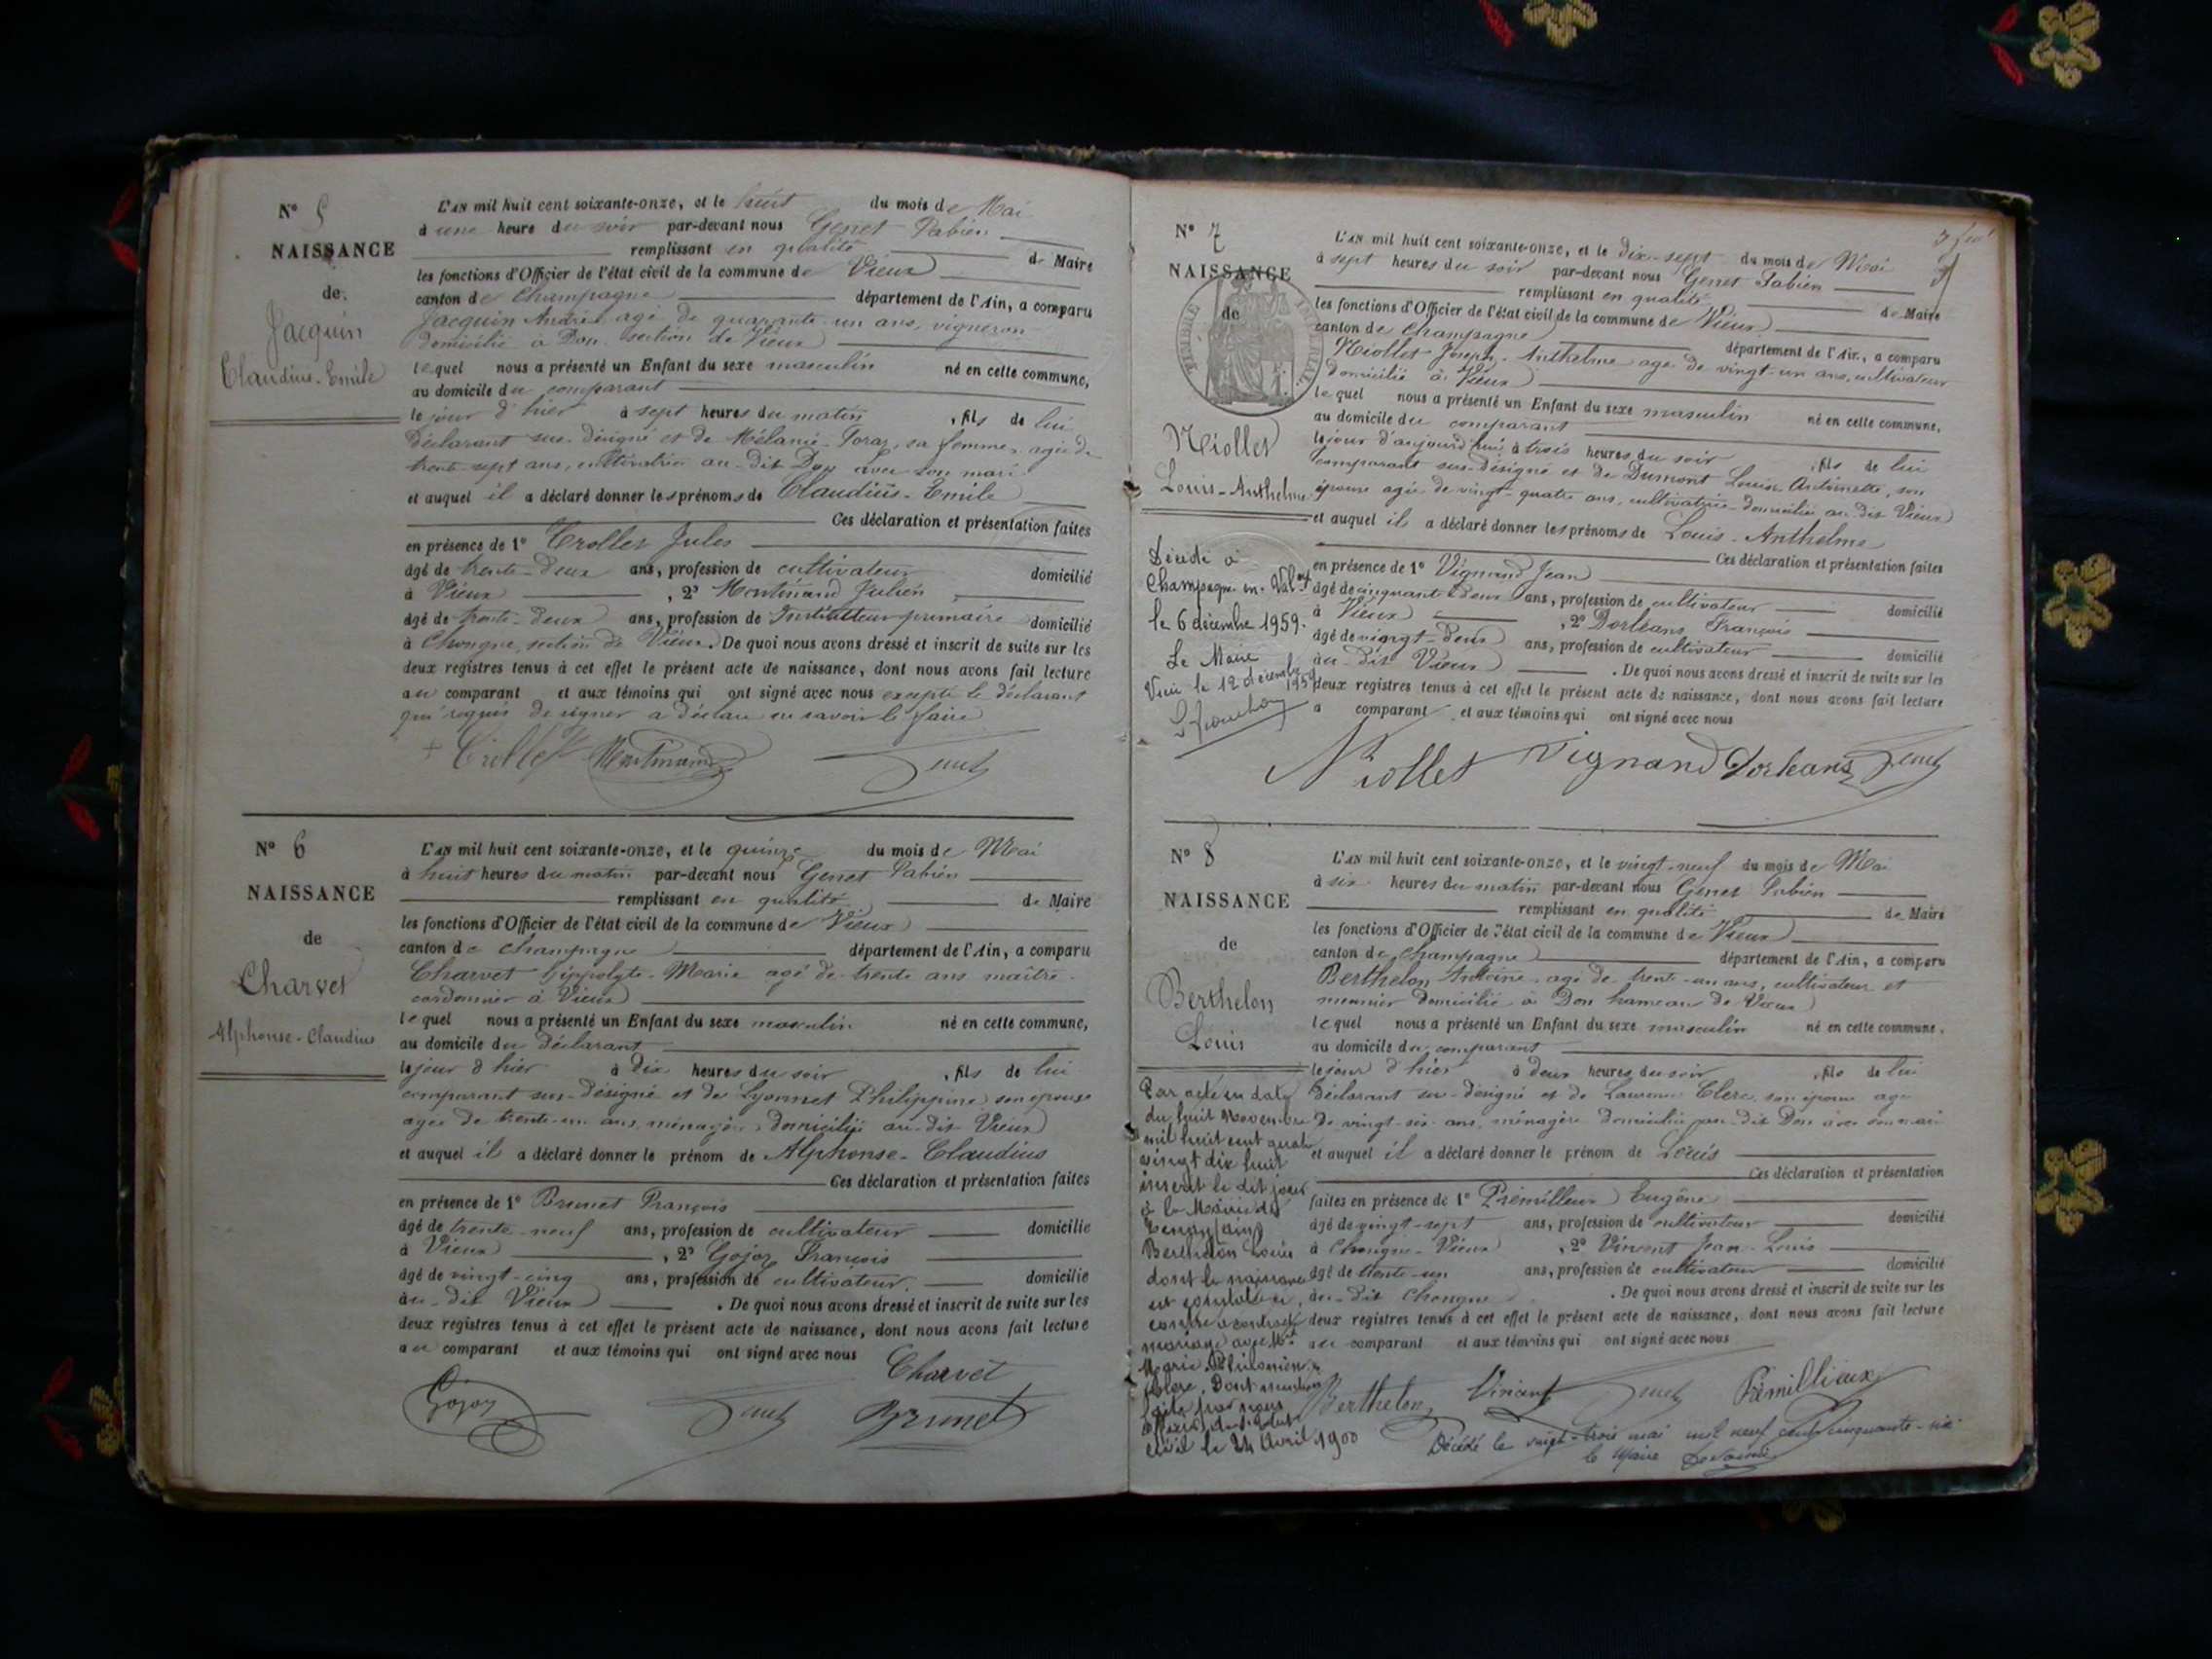 N° 5
NAISSANCE
de
Jacquin
Claudius-Emile
L'AN mil huit cent soixante-onze, et le huit du mois de Mai
à une heure du soir par-devant nous Genet Fabien
remplissant en qualité de Maire
les fonctions d'Officier de l'état civil de la commune de Vieux
canton de Champagne département de l'Ain, a comparu
Jacquin André agé de quarante-un ans, vigneron
domicilié à Don section de Vieux
lequel nous a présenté un Enfant du sexe masculin né en cette commune,
au domicile du comparant
le jour d'hier à sept heures du matin, fils de lui
déclarant sus-désigné et de Mélanie sa femme, agée de
trente-sept ans, cultivatrice au-dit Don avec son mari
et auquel il a déclaré donner les prénoms de Claudius-Emile
Ces déclaration et présentation faites
en présence de 1° Trollet Jules
âgé de trente-deux ans, profession de cultivateur domicilié
à Vieux, 2° Montinand Julien
âgé de trente-deux ans, profession de Instituteur primaire domicilié
à Chongne, section de Vieux. De quoi nous avons dressé et inscrit de suite sur les
deux registres tenus à cet effet le présent acte de naissance, dont nous avons fait lecture
au comparant et aux témoins qui ont signé avec nous excepté le déclarant
qui requis de signer a déclaré ne savoir le faire
Trollet Montinand Genet
N° 6
NAISSANCE
de
Charvet
Alphonse-Claudius
L'AN mil huit cent soixante-onze, et le quinze du mois de Mai
à huit heures du matin par-devant nous Genet Fabien
remplissant en qualité de Maire
les fonctions d'Officier de l'état civil de la commune de Vieux
canton de Champagne département de l'Ain, a comparu
Charvet Hippolyte-Marie agé de trente ans maître
cordonnier à Vieux
lequel nous a présenté un Enfant du sexe masculin né en cette commune,
au domicile du déclarant
le jour d'hier à dix heures du soir, fils de lui
comparant sus-désigné et de Lyonnet Philippine son épouse
agée de trente-un ans, ménagère, domiciliée au-dit Vieux
et auquel il a déclaré donner le prénom de Alphonse-Claudius
Ces déclaration et présentation faites
en présence de 1° Brunet François
âgé de trente-neuf ans, profession de cultivateur domicilié
à Vieux, 2° Gojoz François
âgé de vingt-cinq ans, profession de cultivateur domicilié
au-dit Vieux. De quoi nous avons dressé et inscrit de suite sur les
deux registres tenus à cet effet le présent acte de naissance, dont nous avons fait lecture
au comparant et aux témoins qui ont signé avec nous
Charvet
Gojoz Genet Brunet
N° 7
NAISSANCE
de
TIMBRE IMPÉRIAL
Niollet
Louis-Anthelme
Décédé à
Champagne-en-Valey
le 6 décembre 1959.
Le Maire
Vieu le 12 décembre
1959
L'AN mil huit cent soixante-onze, et le dix-sept du mois de Mai
à sept heures du soir par-devant nous Genet Fabien
remplissant en qualité de Maire
les fonctions d'Officier de l'état civil de la commune de Vieux
canton de Champagne département de l'Ain, a comparu
Niollet Joseph-Anthelme agé de vingt-un ans, cultivateur
domicilié à Vieux
lequel nous a présenté un Enfant du sexe masculin né en cette commune,
au domicile du comparant
le jour d'aujourd'hui à trois heures du soir, fils de lui
comparant sus-désigné et de Dumont Louise Antoinette, son
épouse agée de vingt-quatre ans, cultivatrice domiciliée au-dit Vieux
et auquel il a déclaré donner les prénoms de Louis-Anthelme
Ces déclaration et présentation faites
en présence de 1° Vignand Jean
âgé de cinquante-deux ans, profession de cultivateur domicilié
à Vieux, 2° Dorléans François
âgé de vingt-deux ans, profession de cultivateur domicilié
au-dit Vieux. De quoi nous avons dressé et inscrit de suite sur les
deux registres tenus à cet effet le présent acte de naissance, dont nous avons fait lecture
a comparant et aux témoins qui ont signé avec nous
Niollet Vignand Dorleans Genet
N° 8
NAISSANCE
de
Berthelon
Louis
Par acte en date
du huit Novembre
mil huit cent quatre
vingt dix huit
inscrit le dit jour
à la Mairie de
Berthelon Louis
dont la naissance
est constatée ci
contre a contracté
mariage avec
Marie Philomène
Clerc, Dont mention
faite par nous
Officier de l'état
civil le 24 Avril 1900
L'AN mil huit cent soixante-onze, et le vingt-neuf du mois de Mai
à six heures du matin par-devant nous Genet Fabien
remplissant en qualité de Maire
les fonctions d'Officier de l'état civil de la commune de Vieux
canton de Champagne département de l'Ain, a comparu
Berthelon Antoine agé de trente-un ans, cultivateur et
meunier domicilié à Don hameau de Vieux
lequel nous a présenté un Enfant du sexe masculin né en cette commune,
au domicile du comparant
le jour d'hier à deux heures du soir, fils de lui
déclarant sus-désigné et de Laurence Clerc son épouse agée
de vingt-six ans, ménagère domiciliée au-dit Don avec son mari
et auquel il a déclaré donner le prénom de Louis
Ces déclaration et présentation
faites en présence de 1° Prémillieux Eugène
âgé de vingt-sept ans, profession de cultivateur domicilié
à Chongne-Vieux, 2° Vincent Jean-Louis
âgé de trente-un ans, profession de cultivateur domicilié
au-dit Chongne. De quoi nous avons dressé et inscrit de suite sur les
deux registres tenus à cet effet le présent acte de naissance, dont nous avons fait lecture
au comparant et aux témoins qui ont signé avec nous
Berthelon Vincent Genet Prémillieux
Décédé le vingt-trois mai mil neuf cent cinquante-six
le Maire